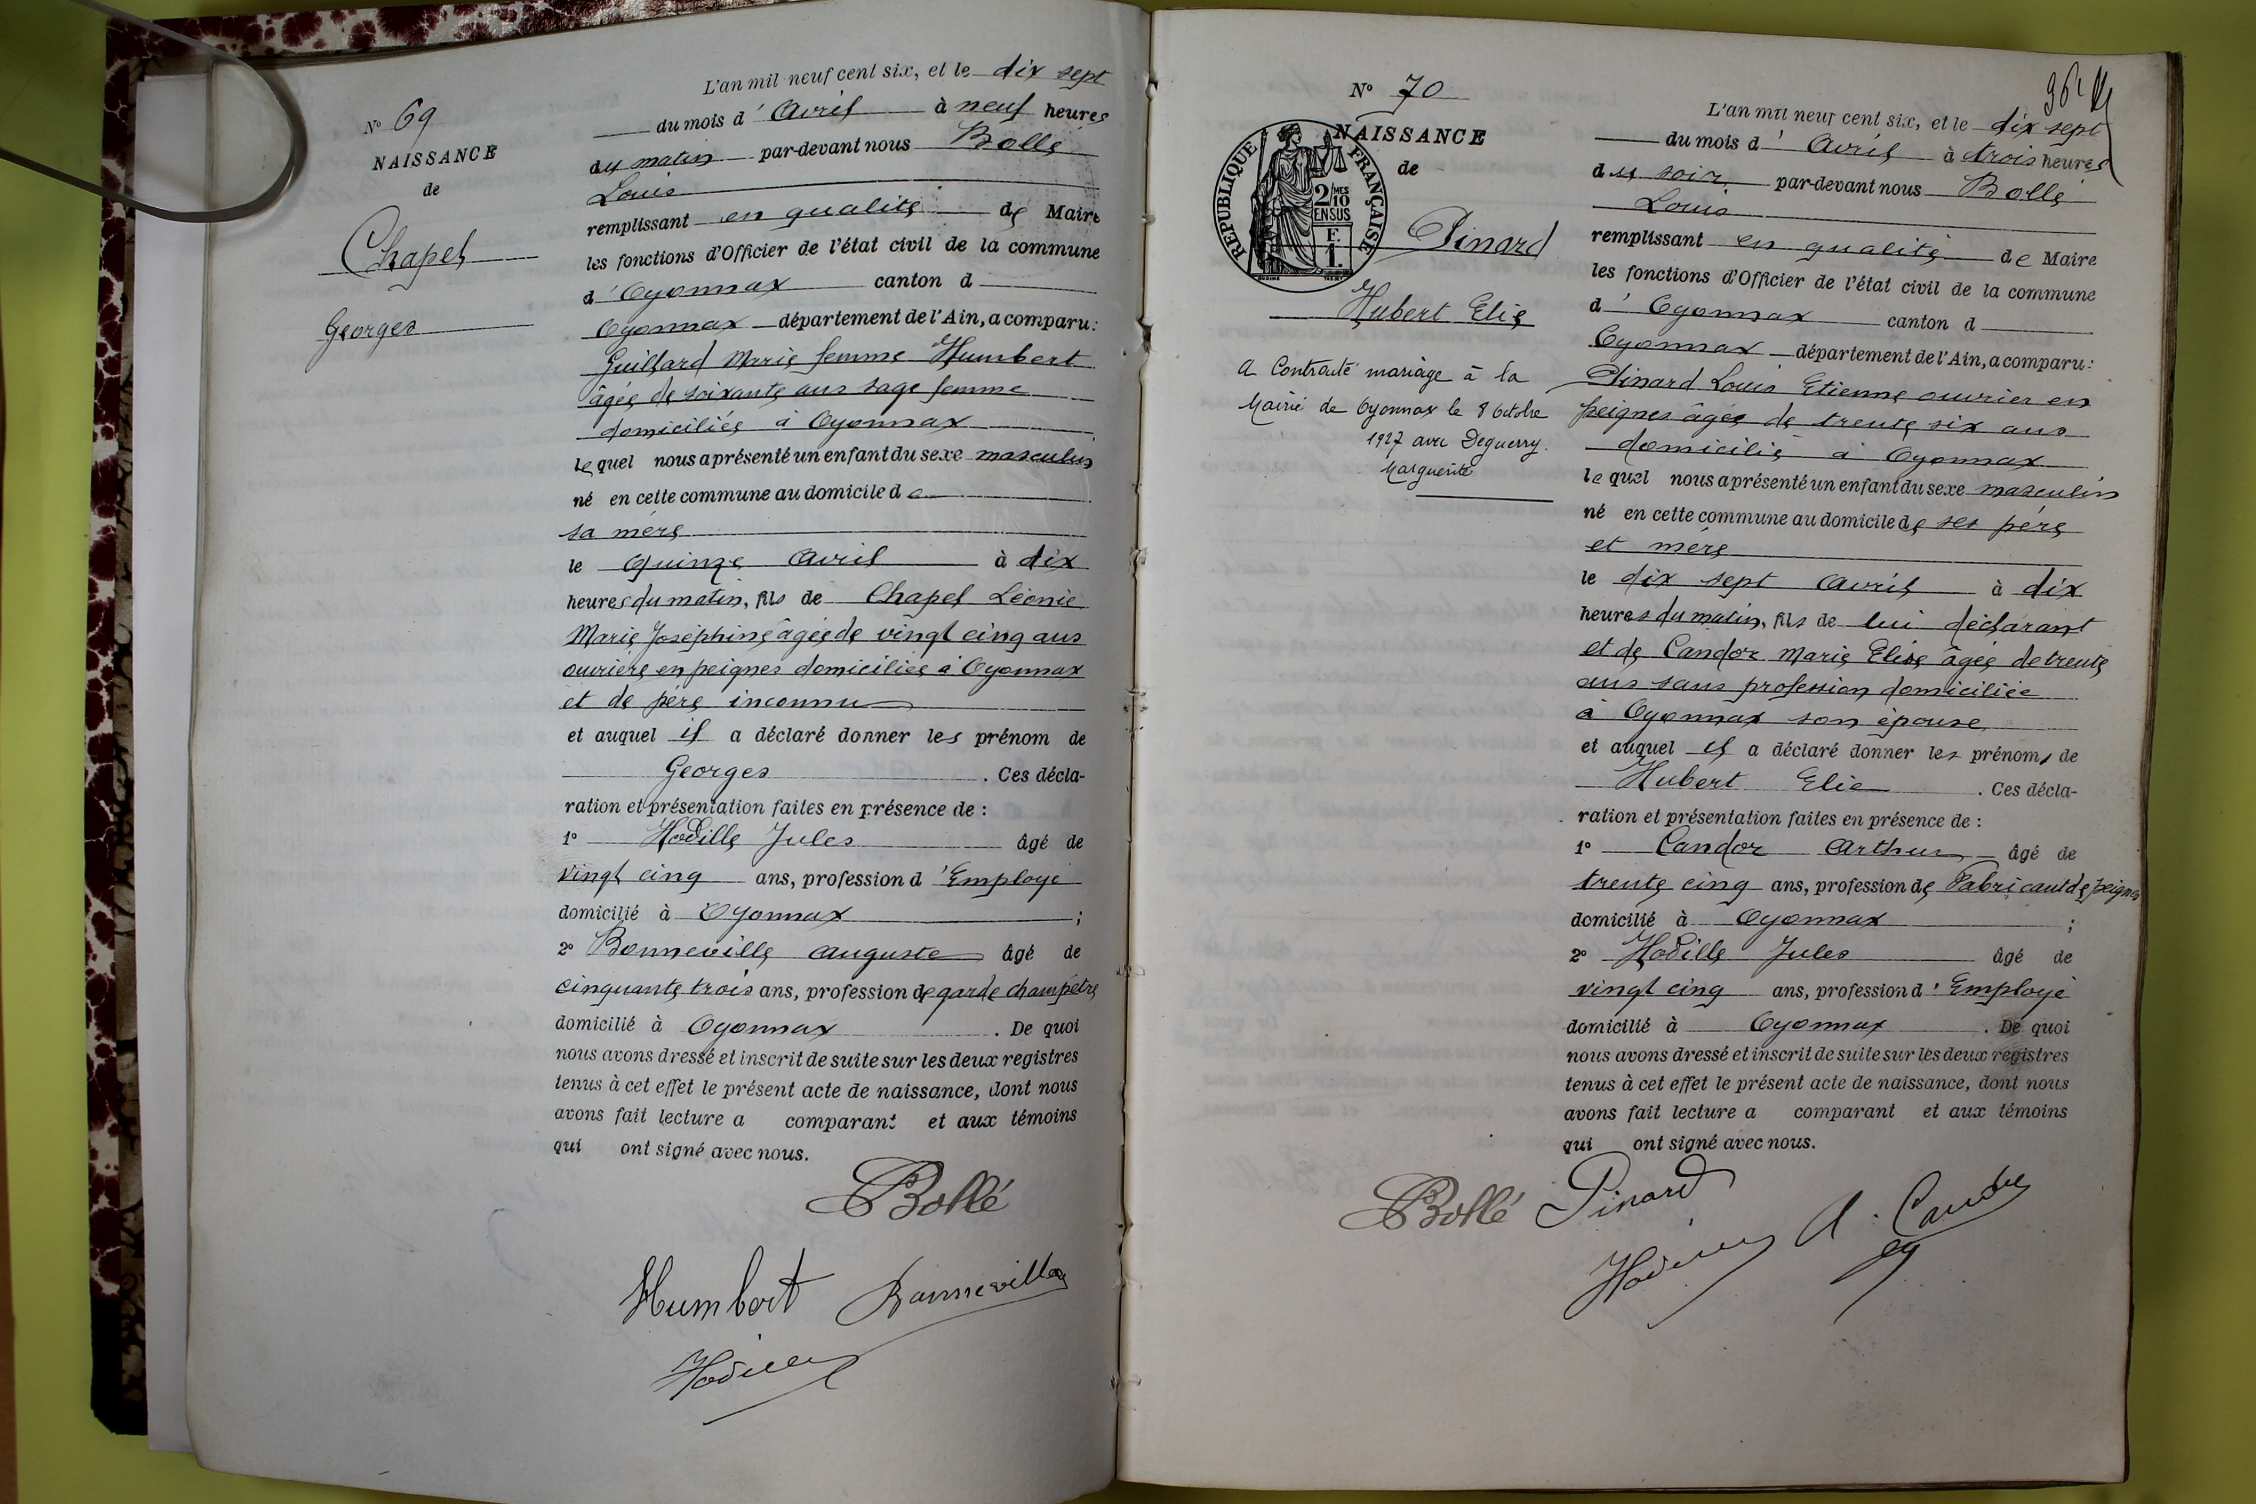 N° 69
NAISSANCE
de
Chapel
Georges
L'an mil neuf cent six, et le dix sept
du mois d' Avril à neuf heures
du matin par-devant nous Bollé
Louis
remplissant en qualité de Maire
les fonctions d'Officier de l'état civil de la commune
d' Oyonnax canton d
Oyonnax département de l'Ain, a comparu:
Guillard Marie femme Humbert
âgée de soixante ans sage femme
domiciliée à Oyonnax
lequel nous a présenté un enfant du sexe masculin
né en cette commune au domicile de
sa mère
le Quinze Avril à dix
heures du matin, fils de Chapel Léonie
Marie Joséphine âgée de vingt cinq ans
ouvrière en peignes domiciliée à Oyonnax
et de père inconnu
et auquel il a déclaré donner les prénom de
Georges . Ces décla-
ration et présentation faites en présence de :
1° Hodille Jules âgé de
vingt cinq ans, profession d'Employé
domicilié à Oyonnax ;
2° Bonneville Auguste âgé de
cinquante trois ans, profession de garde champêtre
domicilié à Oyonnax . De quoi
nous avons dressé et inscrit de suite sur les deux registres
tenus à cet effet le présent acte de naissance, dont nous
avons fait lecture a comparant et aux témoins
qui ont signé avec nous.
Bollé
Humbert Bonneville
Hodille
96
N° 70
NAISSANCE
de
REPUBLIQUE FRANÇAISE
2/10 MES
EN SUS
F.
1.
Pinard
Hubert Elie
a Contracté mariage à la
Mairie de Oyonnax le 8 Octobre
1927 avec Deguerry
Marguerite
L'an mil neuf cent six, et le dix sept
du mois d' Avril à trois heures
du soir par-devant nous Bollé
Louis
remplissant en qualité de Maire
les fonctions d'Officier de l'état civil de la commune
d' Oyonnax canton d
Oyonnax département de l'Ain, a comparu:
Pinard Louis Etienne ouvrier en
peignes âgée de trente six ans
domicilié à Oyonnax
lequel nous a présenté un enfant du sexe masculin
né en cette commune au domicile de ses père
et mère
le dix sept Avril à dix
heures du matin, fils de lui déclarant
et de Candor Marie Elise âgée de trente
ans sans profession domiciliée
à Oyonnax son épouse
et auquel il a déclaré donner les prénoms de
Hubert Elie . Ces décla-
ration et présentation faites en présence de :
1° Candor Arthur âgé de
trente cinq ans, profession de Fabricant de peignes
domicilié à Oyonnax ;
2° Hodille Jules âgé de
vingt cinq ans, profession d'Employé
domicilié à Oyonnax . De quoi
nous avons dressé et inscrit de suite sur les deux registres
tenus à cet effet le présent acte de naissance, dont nous
avons fait lecture a comparant et aux témoins
qui ont signé avec nous.
Bollé Pinard
Hodille A. Candor